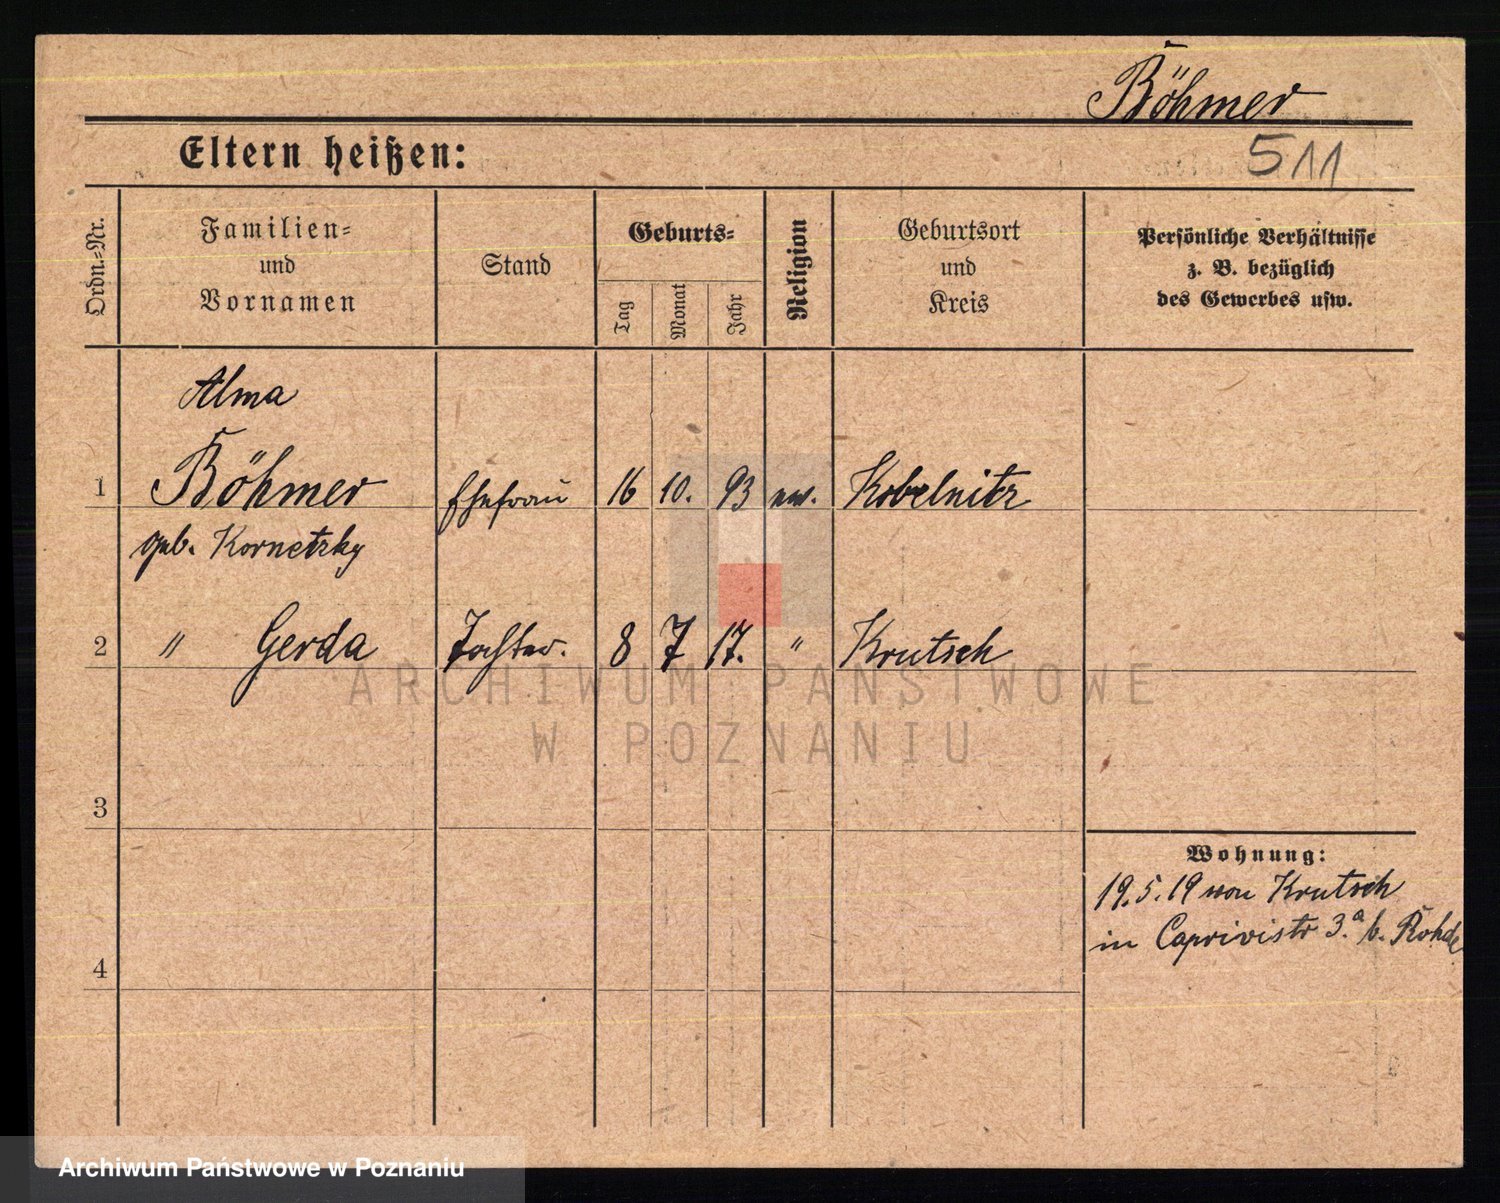 Böhmer
Eltern heißen:
511
Ordn.-Nr.
Familien-
und
Vornamen
Stand
Geburts-
Tag
Monat
Jahr
Religion
Geburtsort
und
Kreis
Persönliche Verhältnisse
z. B. bezüglich
des Gewerbes usw.
Alma
1 Böhmer Ehefrau 16 10. 93 ev. Kobelnitz
geb. Kornetzky
2 " Gerda Tochter. 8 7 17. " Krutsch
3
Wohnung:
19.5.19 von Krutsch
in Caprivistr 3.a b. Rohde
4
ARCHIWUM PAŃSTWOWE
W POZNANIU
Archiwum Państwowe w Poznaniu